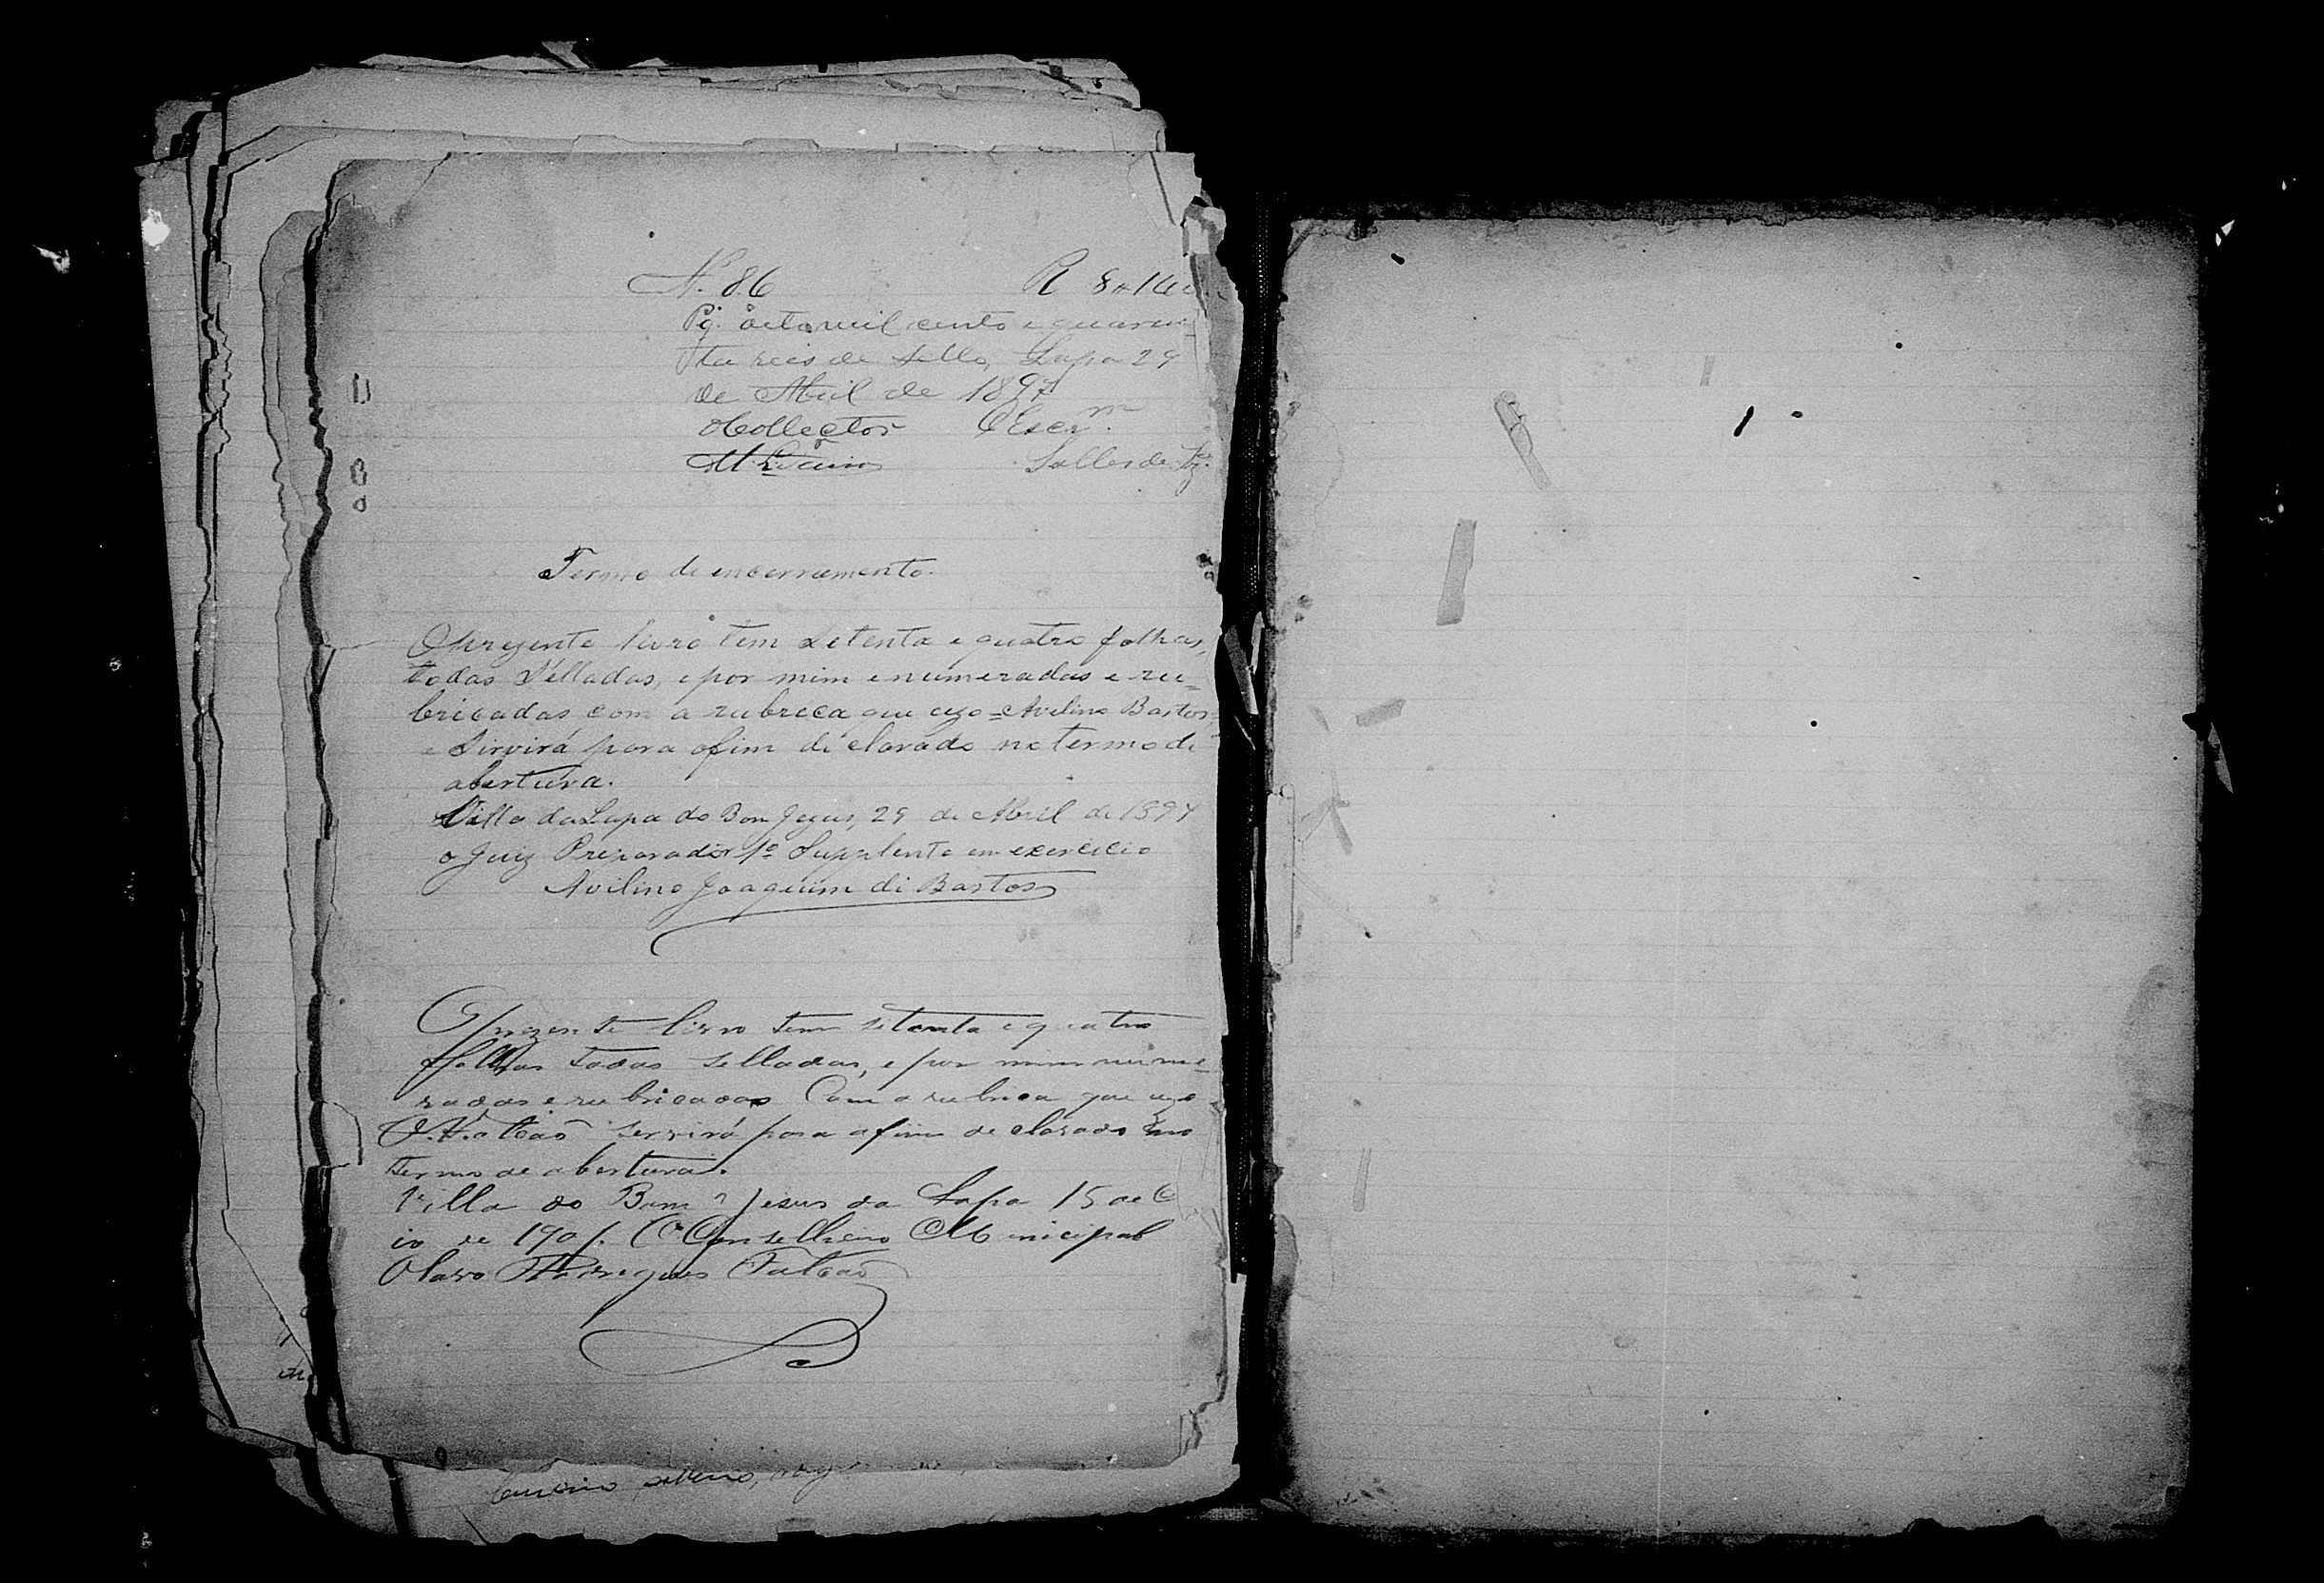 Nº. 86 R 8#140
Pg. oito mil cento e quaren-
ta reis de Sello, Lapa 29
de Abril de 1897
O Collector O Escr.m
Salles de
Termo de encerramento.
O prezente livro tem Setenta e quatro folhas,
todas Selladas, e por mim enumeradas e ru=
bricadas com a rubrica que uzo = Avelino Bastos=
e Sirvirá para o fim diclarado no termo di
abertura.
Villa da Lapa do Bom Jezus, 29 de Abril de 1897
o Juiz Preparador 1º Supplente em exercicio
Avilino Joaquim di Bastos
O prezente livro tem setenta e quatro
folhas todas selladas, e por mim nume=
radas e rubricadas Com a rubrica que uzo
O. Falcaõ servirá para o fim declarado no
termo de abertura.
Villa do Bom Jesus da Lapa 15 de
io de 1901. O Conselheiro Municipal
Olavo Rodrigues Falcaõ